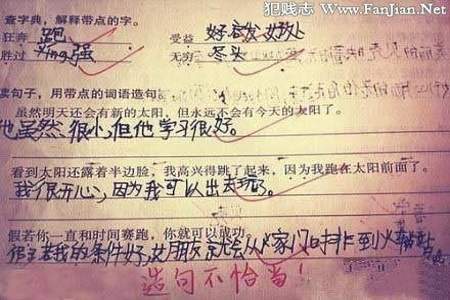 犯贱志 Www.FanJian.Net
查字典，解释带点的字。
狂奔 跑 受益 好
胜过 强 无穷 尽头
读句子，用带点的词语造句
虽然明天还会有新的太阳，但永远不会有今天的太阳了。
他虽然很小,但他学习很好。
看到太阳还露着半边脸，我高兴得跳了起来，因为我跑在太阳前面了。
我很开心,因为我可以出去玩了。
假若你一直和时间赛跑，你就可以成功。
假若我的条件好,女朋友就会从家门口排到火车站
造句不恰当！